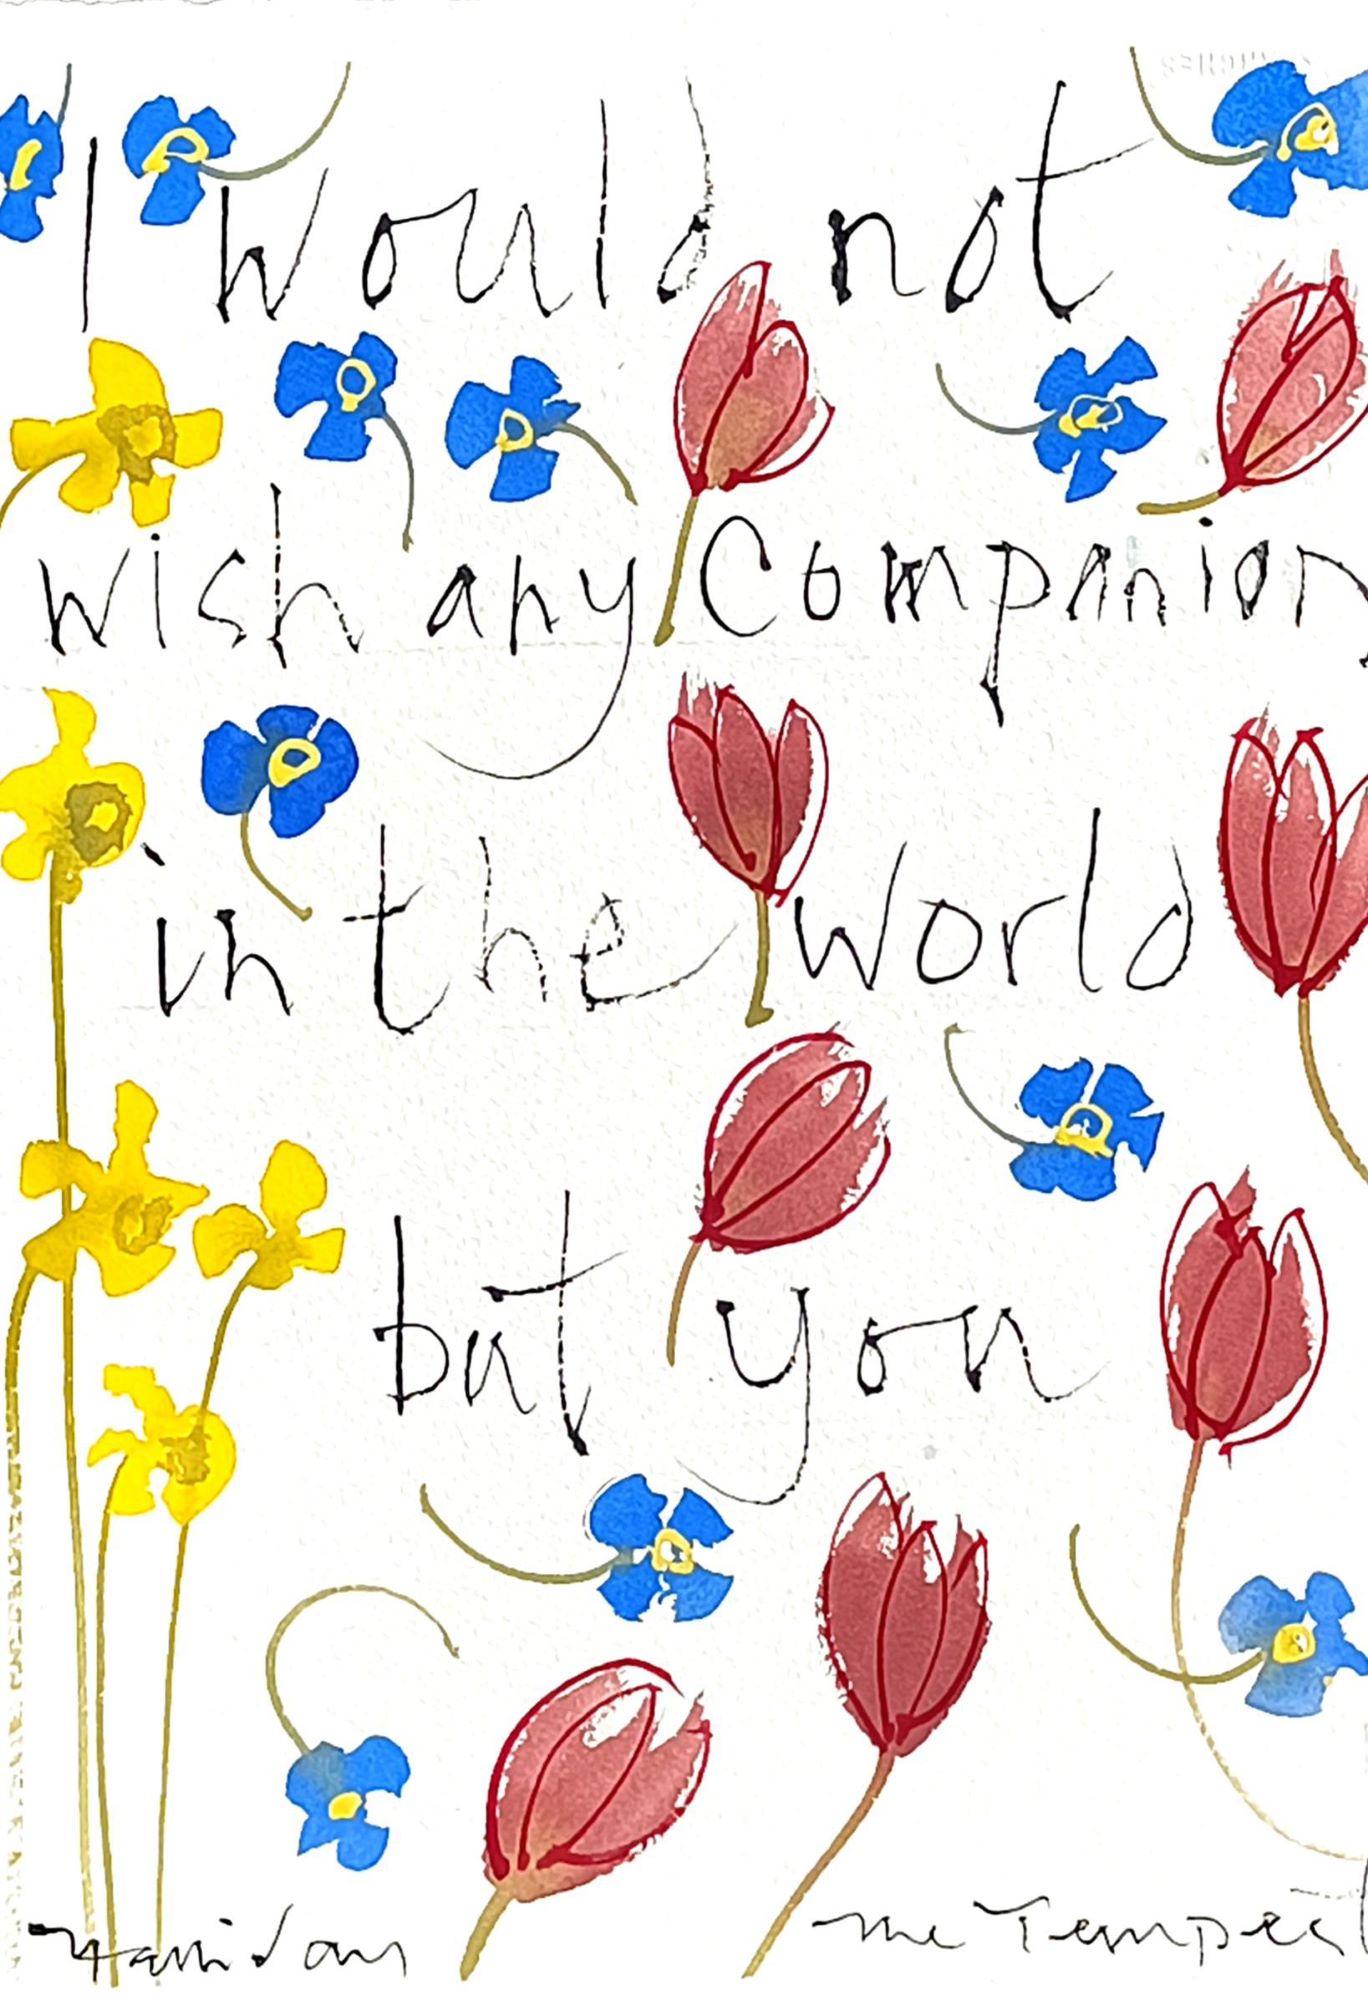 I would not
wish any Companion
in the world
but you
The Tempest